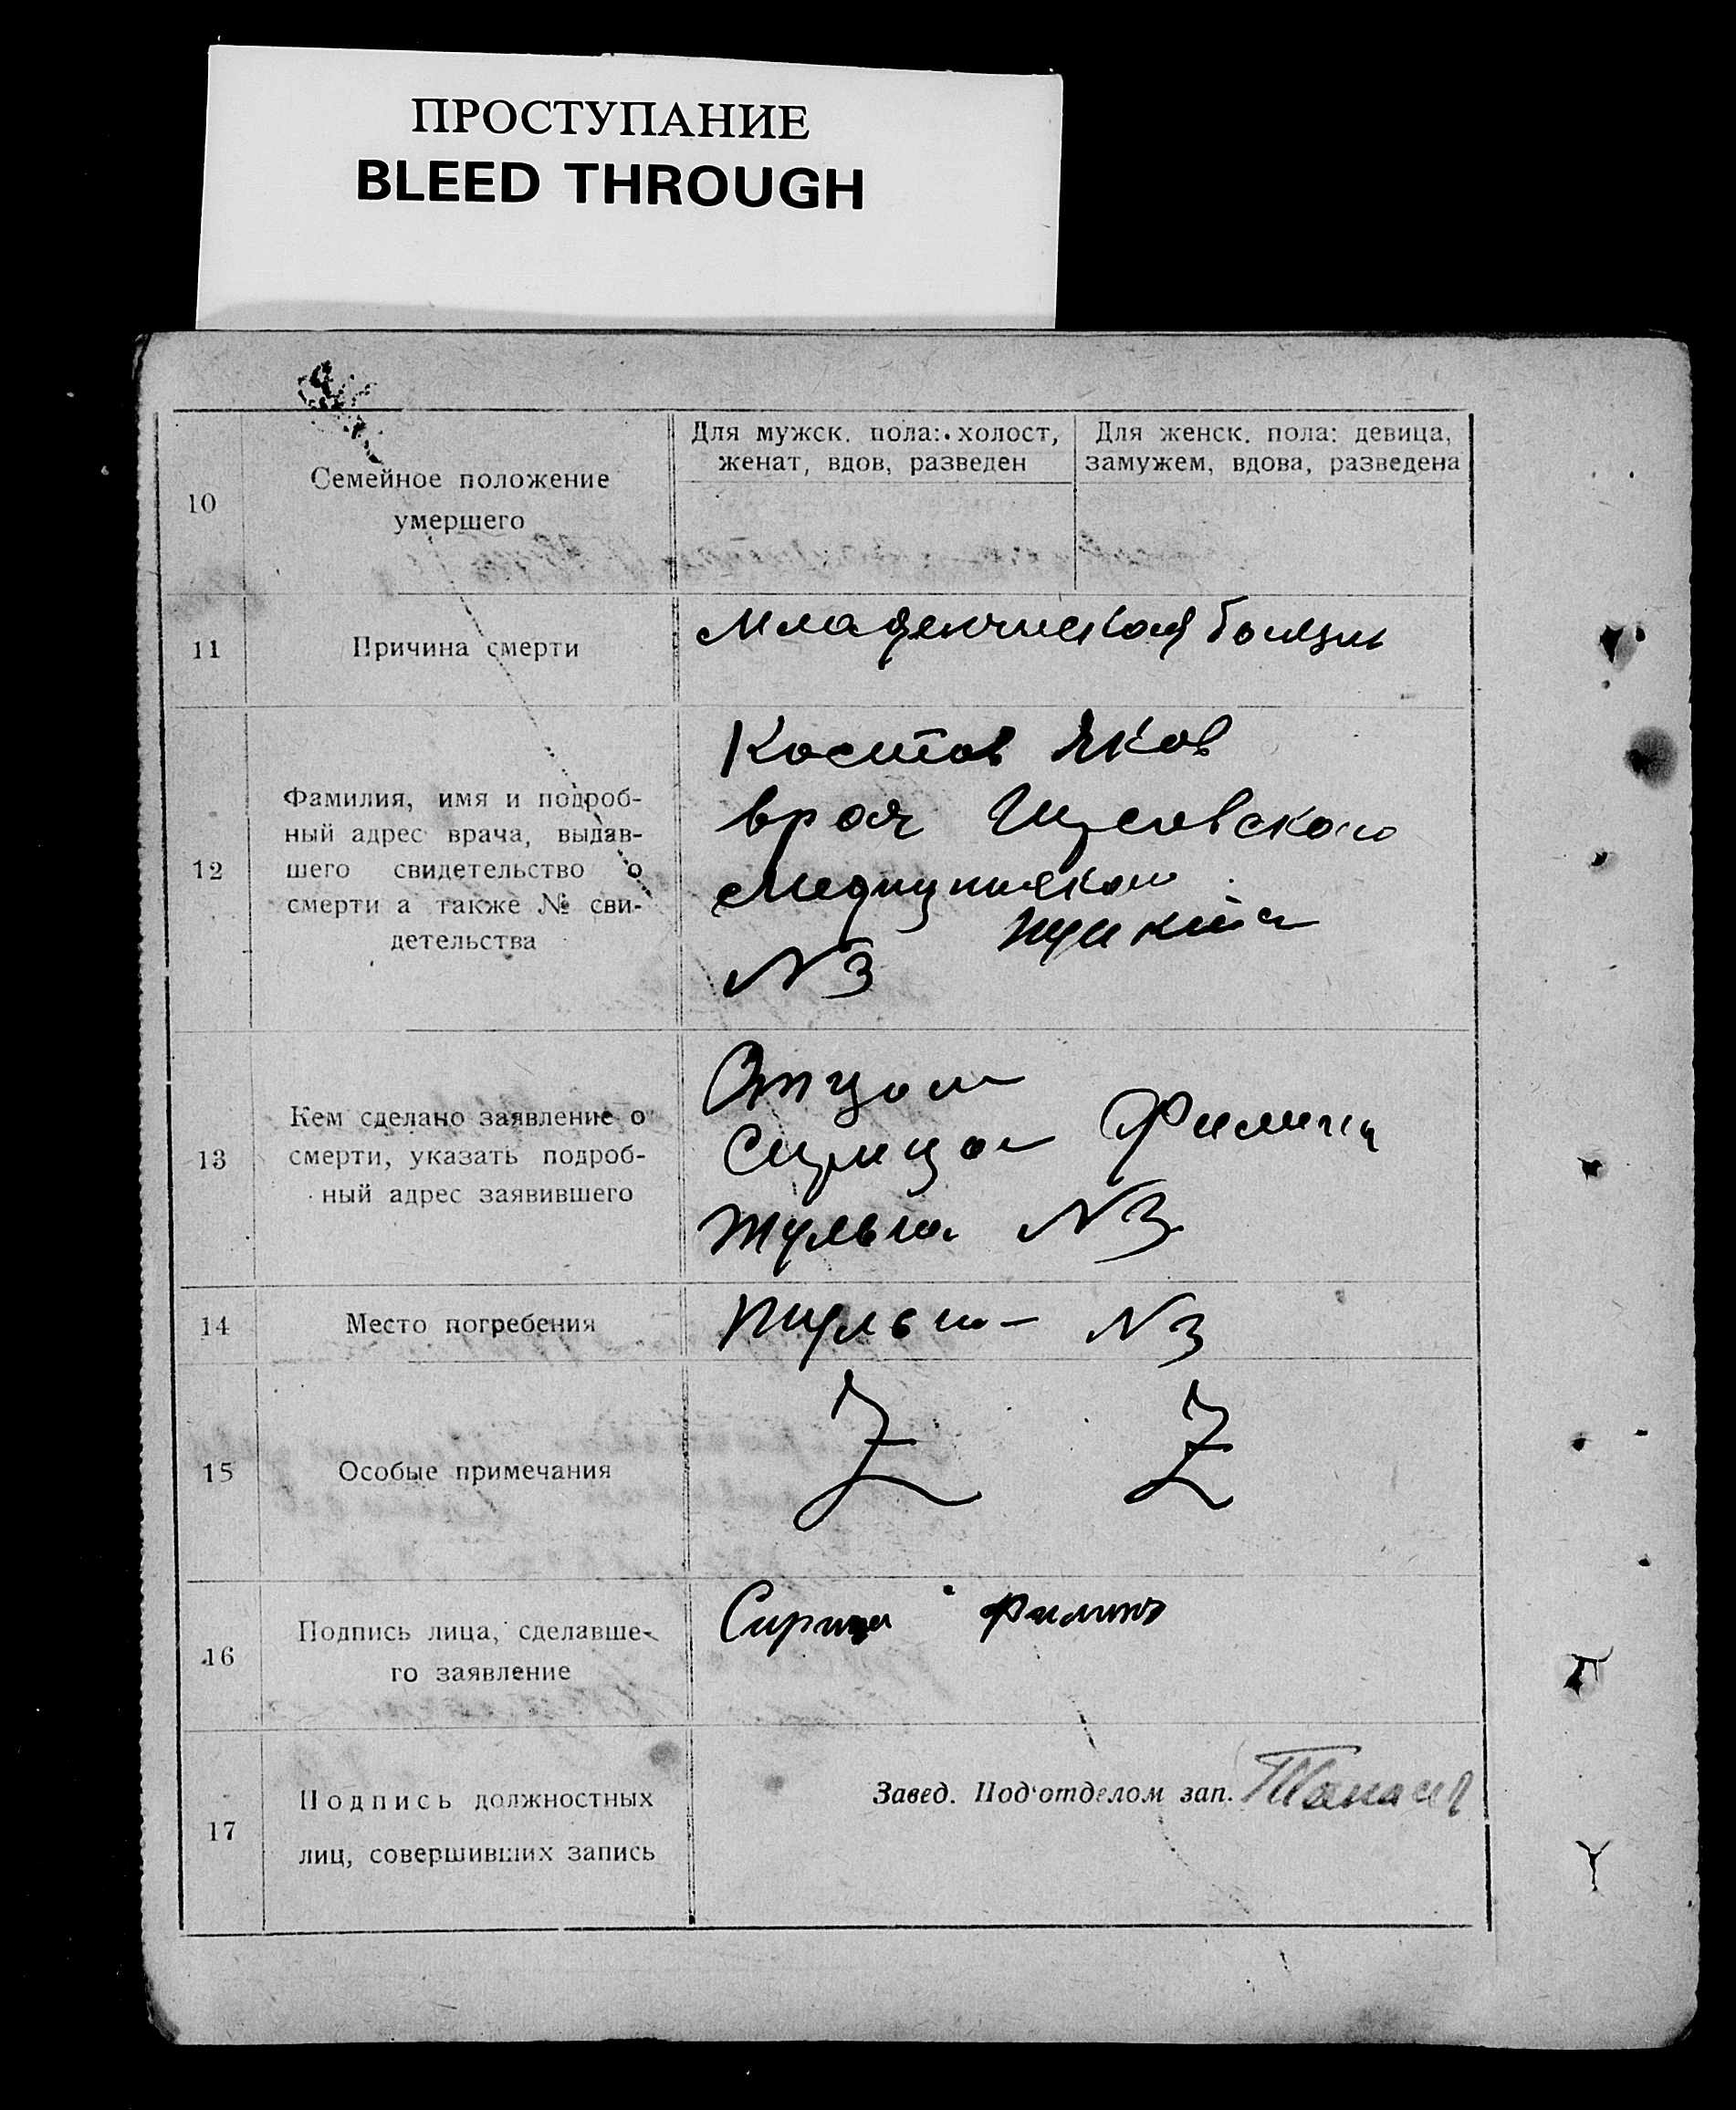 ПРОСТУПАНИЕ
BLEED THROUGH
10
Семейное положение
умершего
Для мужск. пола: холост,
женат, вдов, разведен
Для женск. пола: девица,
замужем, вдова, разведена
11
Причина смерти
Младенческая
12
Фамилия, имя и подроб-
ный адрес врача, выдав-
шего свидетельство о
смерти а также № сви-
детельства
Костов Яков
врач
Медицинского
пункта
N 3
13
Кем сделано заявление о
смерти, указать подроб-
ный адрес заявившего
Отцом
Филипп
N 3
14
Место погребения
N 3
15
Особые примечания
Z Z
16
Подпись лица, сделавше-
го заявление
Филипп
17
Подпись должностных
лиц, совершивших запись
Завед. Под'отделом зап.